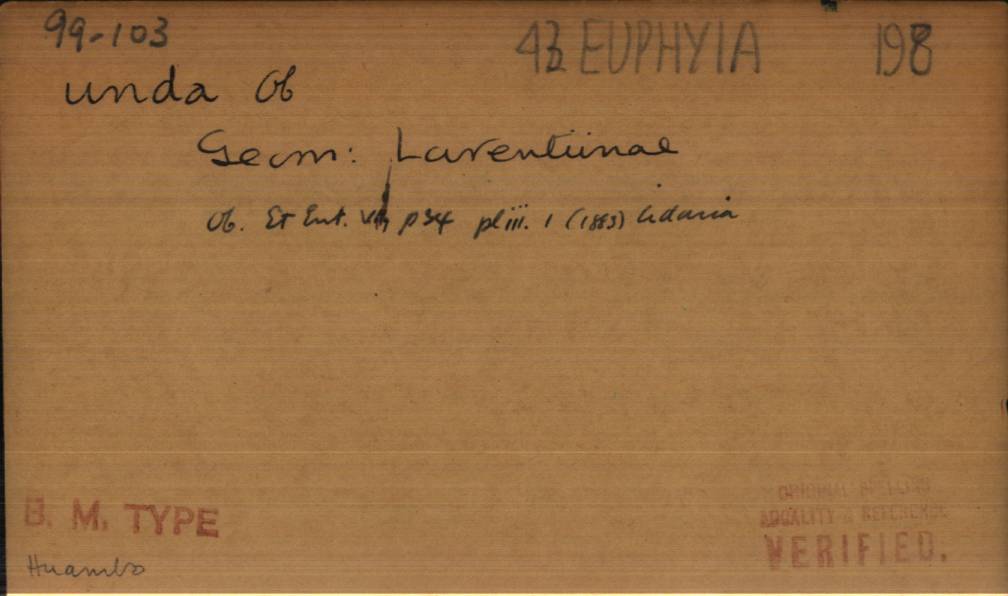 99-103
EUPHYIA 198
unda Ob
Geom: Larentiinae
Ob. Et Ent. p 34 pl iii. 1 (1883) Cidaria
B. M. TYPE
ORIGINAL SPELLING
LOCALITY & REFERENCE
VERIFIED.
Huambo